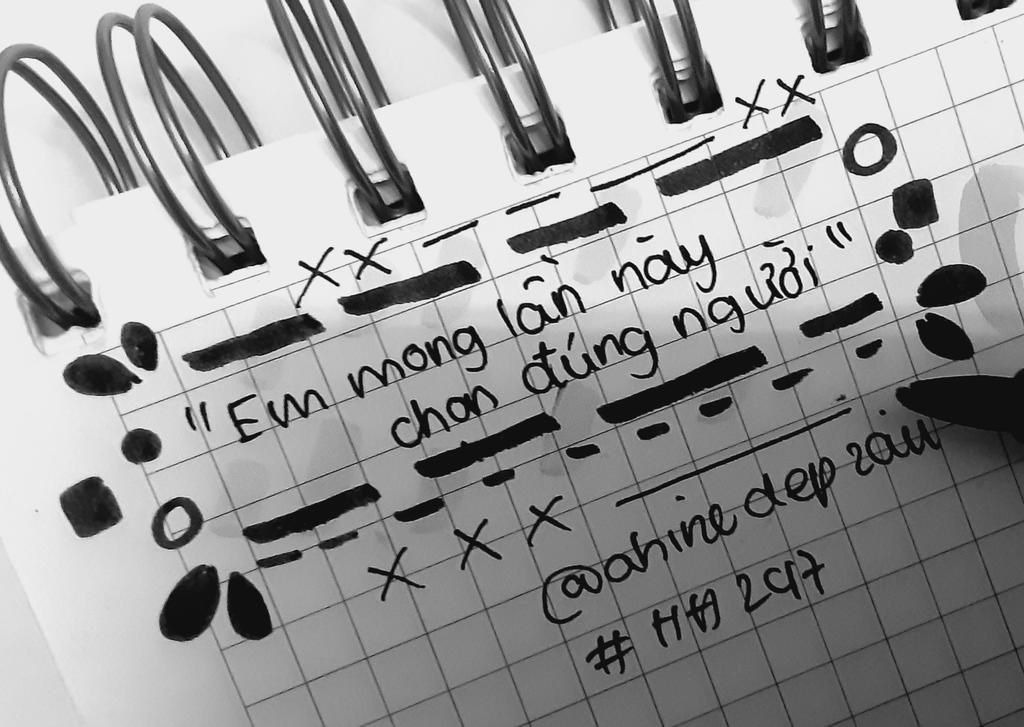 "Em mong lần này
chọn đúng người"
@ahinedepzaiu
# HA 247